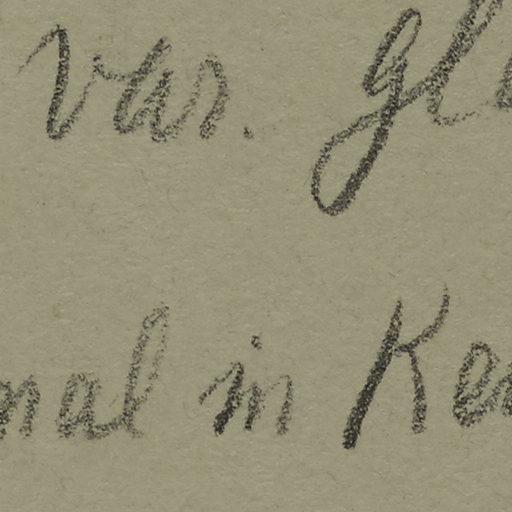 var. gl
nal in Ke